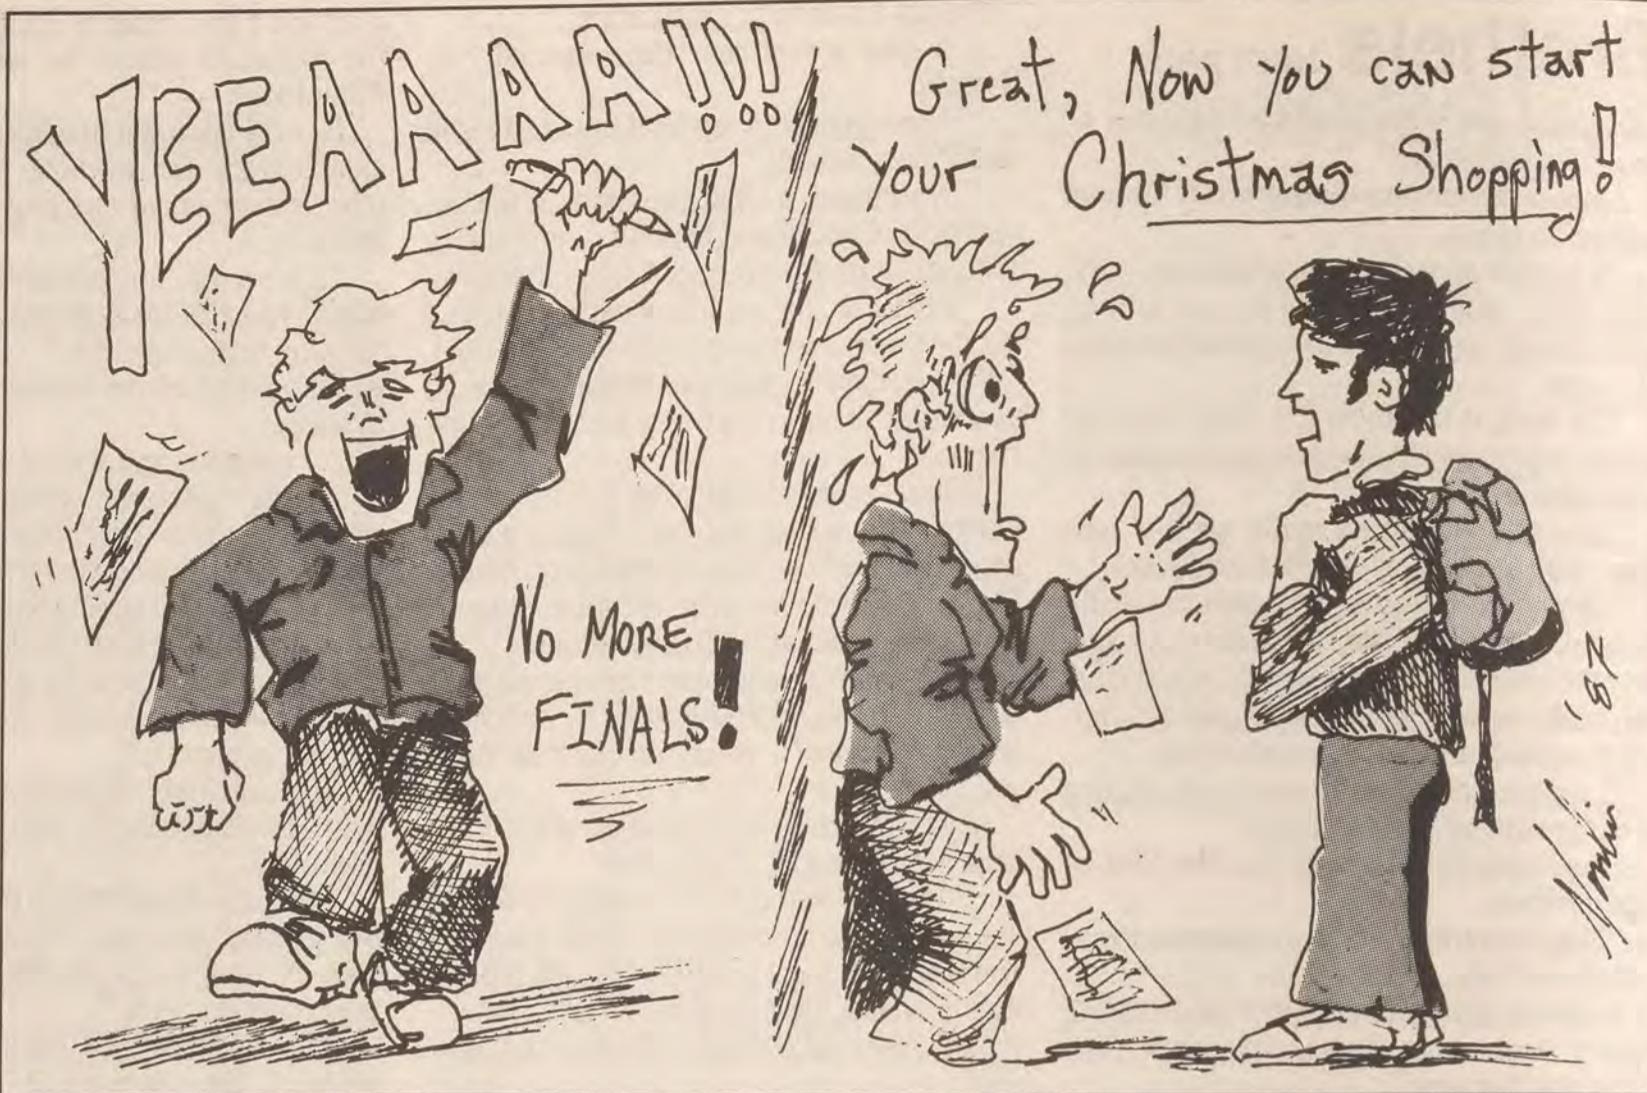 YEEAAAA!!!!
No MORE
FINALS!
Great, Now you can start
your Christmas Shopping!
'87